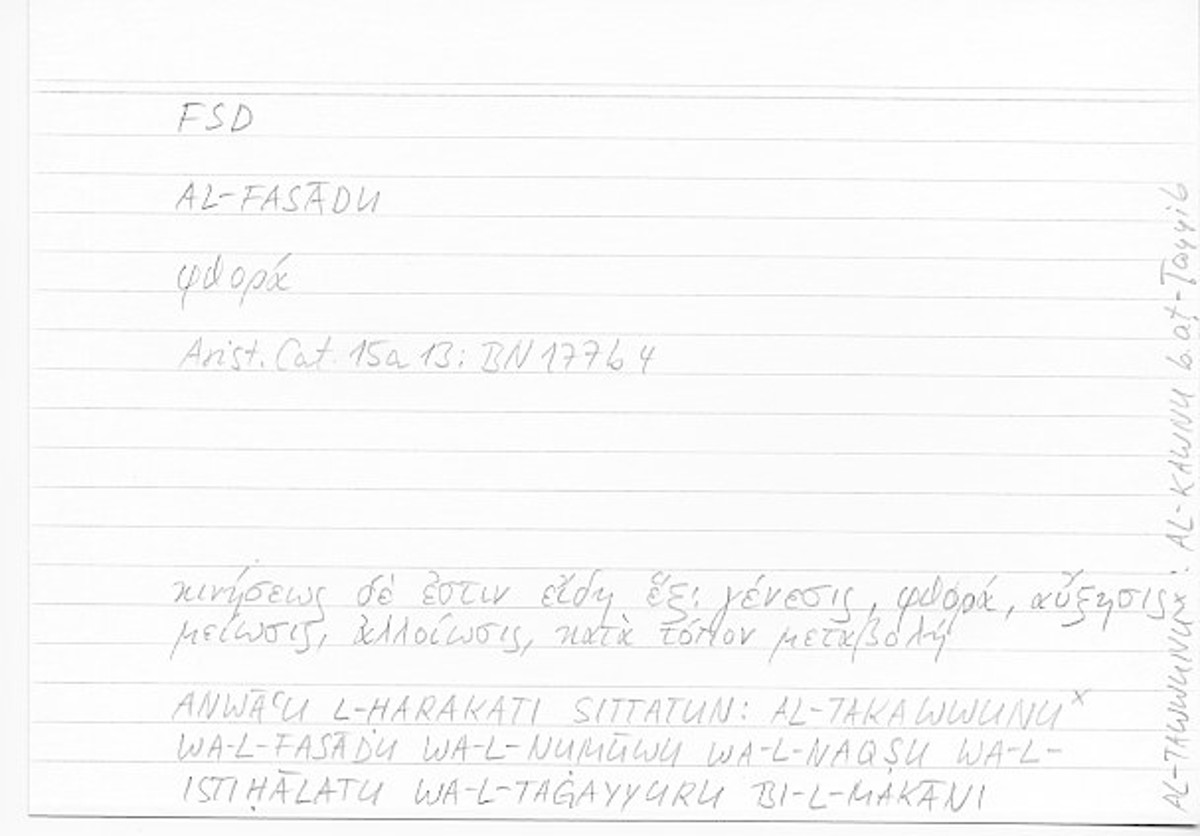 FSD
AL-FASĀDU
φθορά
Arist. Cat. 15a 13: BN 177b 4
κινήσεως δέ ἐστιν εἴδη ἕξ: γένεσις, φθορά, αὔξησις,
μείωσις, ἀλλοίωσις, κατὰ τόπον μεταβολή
ANWĀʿU L-ḤARAKATI SITTATUN: AL-TAKAWWUNUˣ
WA-L-FASĀDU WA-L-NUMŪWU WA-L-NAQṢU WA-L-
ISTIḤĀLATU WA-L-TAĠAYYURU BI-L-MAKĀNI
AL-TAWWUNUˣ: AL-KAWNU b. at-Ṭayyib